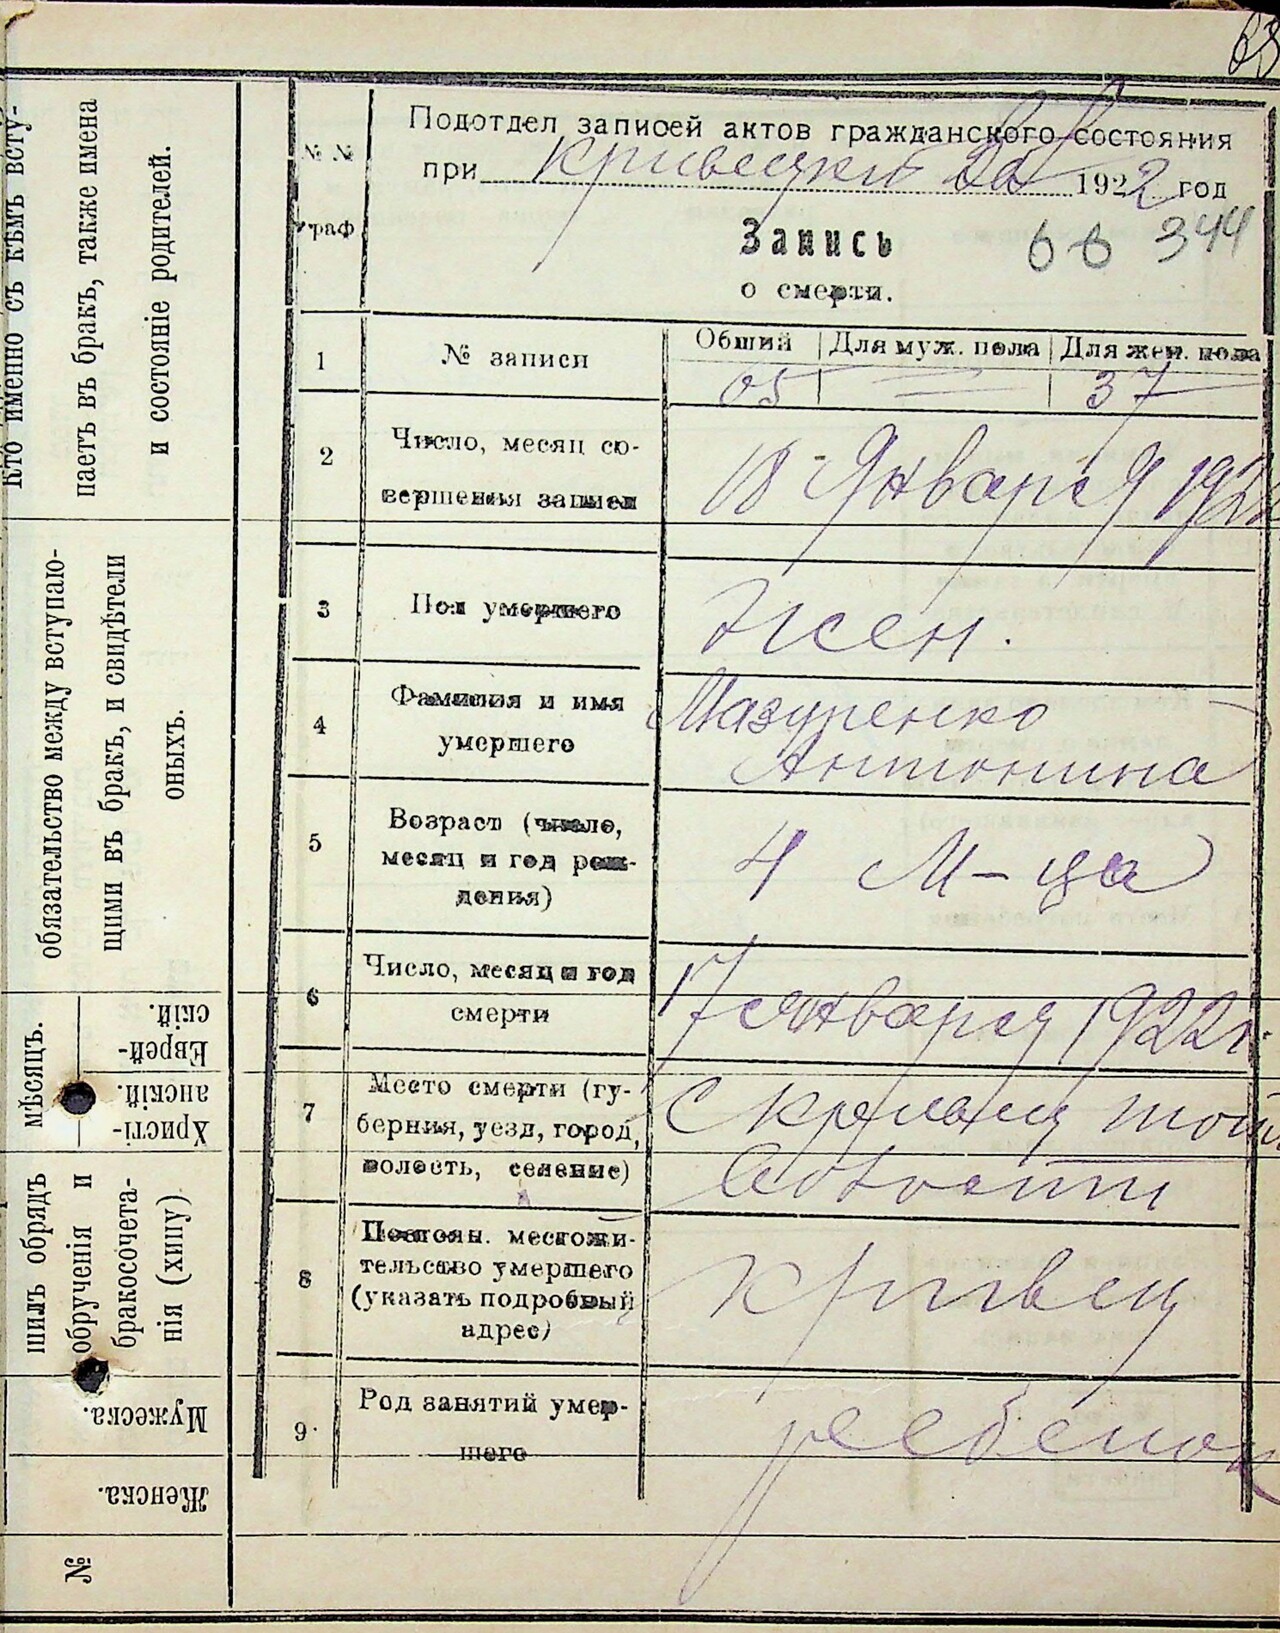 63
Кто именно съ кѣмъ всту-
паетъ въ бракъ, также имена
и состояніе родителей.
обязательство между вступаю-
щими въ бракъ, и свидѣтели
оныхъ.
мѣсяцъ.
Христі-
анскій.
Еврей-
скій.
шилъ обрядъ
обрученія и
бракосочета-
нія (хипу)
Мужеска.
Женска.
№
№ №
граф
Подотдел записей актов гражданского состояния
при 1922 год
Запись
66 344
о смерти.
1 № записи Общий Для муж. пола Для жен. пола
65 — 37
2 Число, месяц со-
вершения записи
18 Января 1922
3 Пол умершего Жен.
4 Фамилия и имя
умершего
Мазуренко
Антонина
5 Возраст (число,
месяц и год рож-
дения)
4 М-ца
6 Число, месяц и год
смерти
17 января 1922 г.
7 Место смерти (гу-
берния, уезд, город,
волость, селение)
волости
8 Постоян. местожи-
тельство умершего
(указать подробный
адрес)
Кривец
9 Род занятий умер-
шего
ребенок